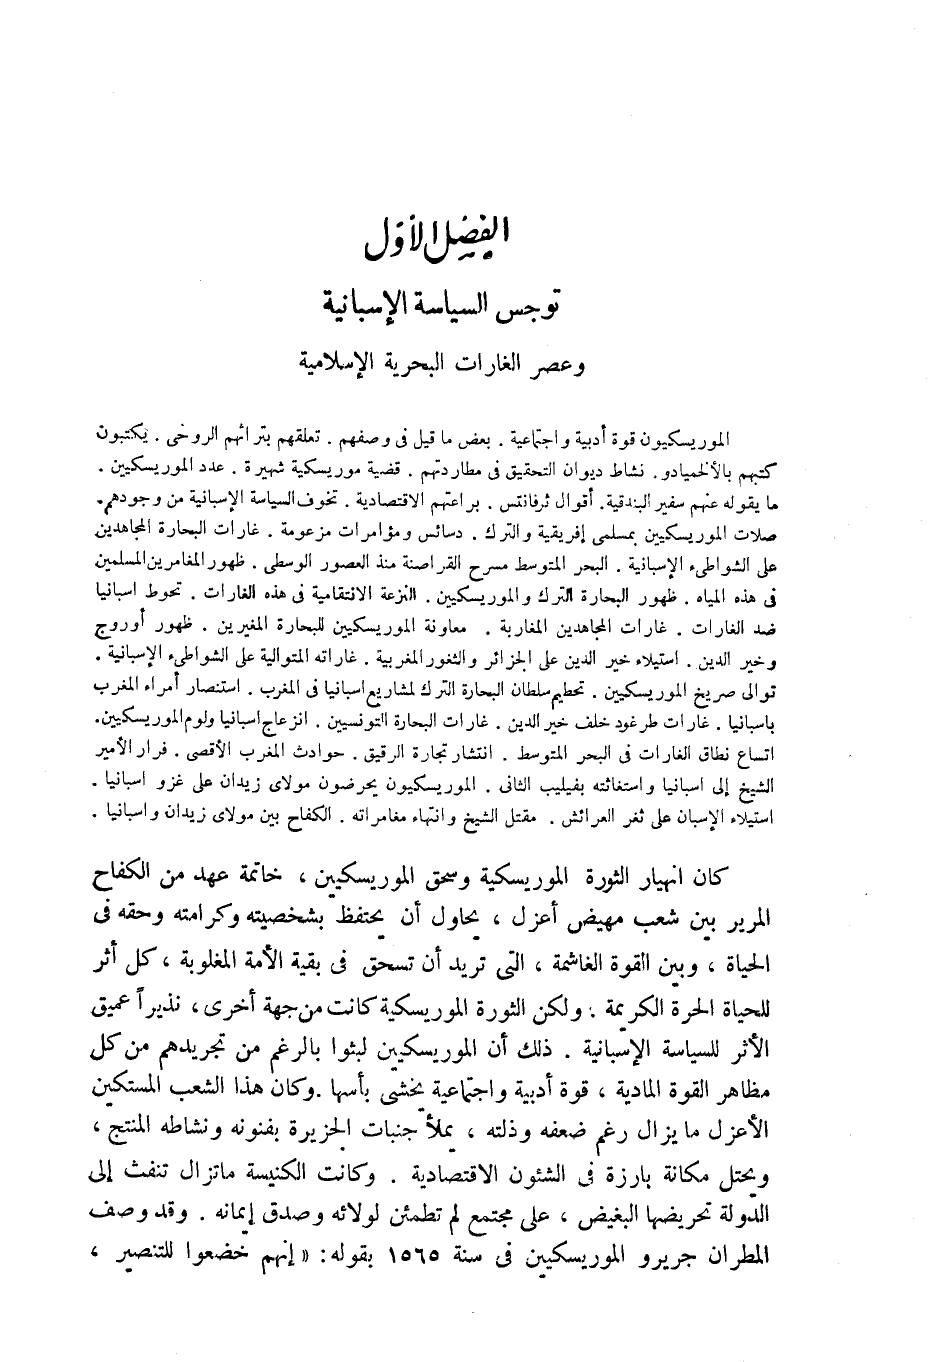 الفصل الأول
توجس السياسة الإسبانية
وعصر الغارات البحرية الإسلامية
الموريسكيون قوة أدبية واجتماعية . بعض ما قيل فى وصفهم . تعلقهم بتراثهم الروحى . يكتبون
كتبهم بالألخميادو . نشاط ديوان التحقيق فى مطاردتهم . قضية موريسكية شهيرة . عدد الموريسكيين .
ما يقوله عنهم سفير البندقية . أقوال ثرفانتس . براعتهم الاقتصادية . تخوف السياسة الإسبانية من وجودهم .
صلات الموريسكيين بمسلمى إفريقية والترك . دسائس ومؤامرات مزعومة . غارات البحارة المجاهدين
على الشواطىء الإسبانية . البحر المتوسط مسرح القراصنة منذ العصور الوسطى . ظهور المغامرين المسلمين
فى هذه المياه . ظهور البحارة الترك والموريسكيين . النزعة الانتقامية فى هذه الغارات . تحوط اسبانيا
ضد الغارات . غارات المجاهدين المغاربة . معاونة الموريسكيين للبحارة المغيرين . ظهور أوروج
وخير الدين . استيلاء خير الدين على الجزائر والثغور المغربية . غاراته المتوالية على الشواطىء الإسبانية .
توالى صريخ الموريسكيين . تحطيم سلطان البحارة الترك لمشاريع اسبانيا فى المغرب . استنصار أمراء المغرب
باسبانيا . غارات طرغود خلف خير الدين . غارات البحارة التونسيين . انزعاج اسبانيا ولوم الموريسكيين .
اتساع نطاق الغارات فى البحر المتوسط . انتشار تجارة الرقيق . حوادث المغرب الأقصى . فرار الأمير
الشيخ إلى اسبانيا واستغاثته بفيليب الثانى . الموريسكيون يحرضون مولاى زيدان على غزو اسبانيا .
استيلاء الإسبان على ثغر العرائش . مقتل الشيخ وانتهاء مغامراته . الكفاح بين مولاى زيدان واسبانيا .
كان انهيار الثورة الموريسكية وسحق الموريسكيين ، خاتمة عهد من الكفاح
المرير بين شعب مهيض أعزل ، يحاول أن يحتفظ بشخصيته وكرامته وحقه فى
الحياة ، وبين القوة الغاشمة ، التى تريد أن تسحق فى بقية الأمة المغلوبة ، كل أثر
للحياة الحرة الكريمة . ولكن الثورة الموريسكية كانت من جهة أخرى ، نذيراً عميق
الأثر للسياسة الإسبانية . ذلك أن الموريسكيين لبثوا بالرغم من تجريدهم من كل
مظاهر القوة المادية ، قوة أدبية واجتماعية يخشى بأسها . وكان هذا الشعب المستكين
الأعزل ما يزال رغم ضعفه وذلته ، يملأ جنبات الجزيرة بفنونه ونشاطه المنتج ،
ويحتل مكانة بارزة فى الشئون الاقتصادية . وكانت الكنيسة ماتزال تنفث إلى
الدولة تحريضها البغيض ، على مجتمع لم تطمئن لولائه وصدق إيمانه . وقد وصف
المطران جريرو الموريسكيين فى سنة ١٥٦٥ بقوله : « إنهم خضعوا للتنصير ،